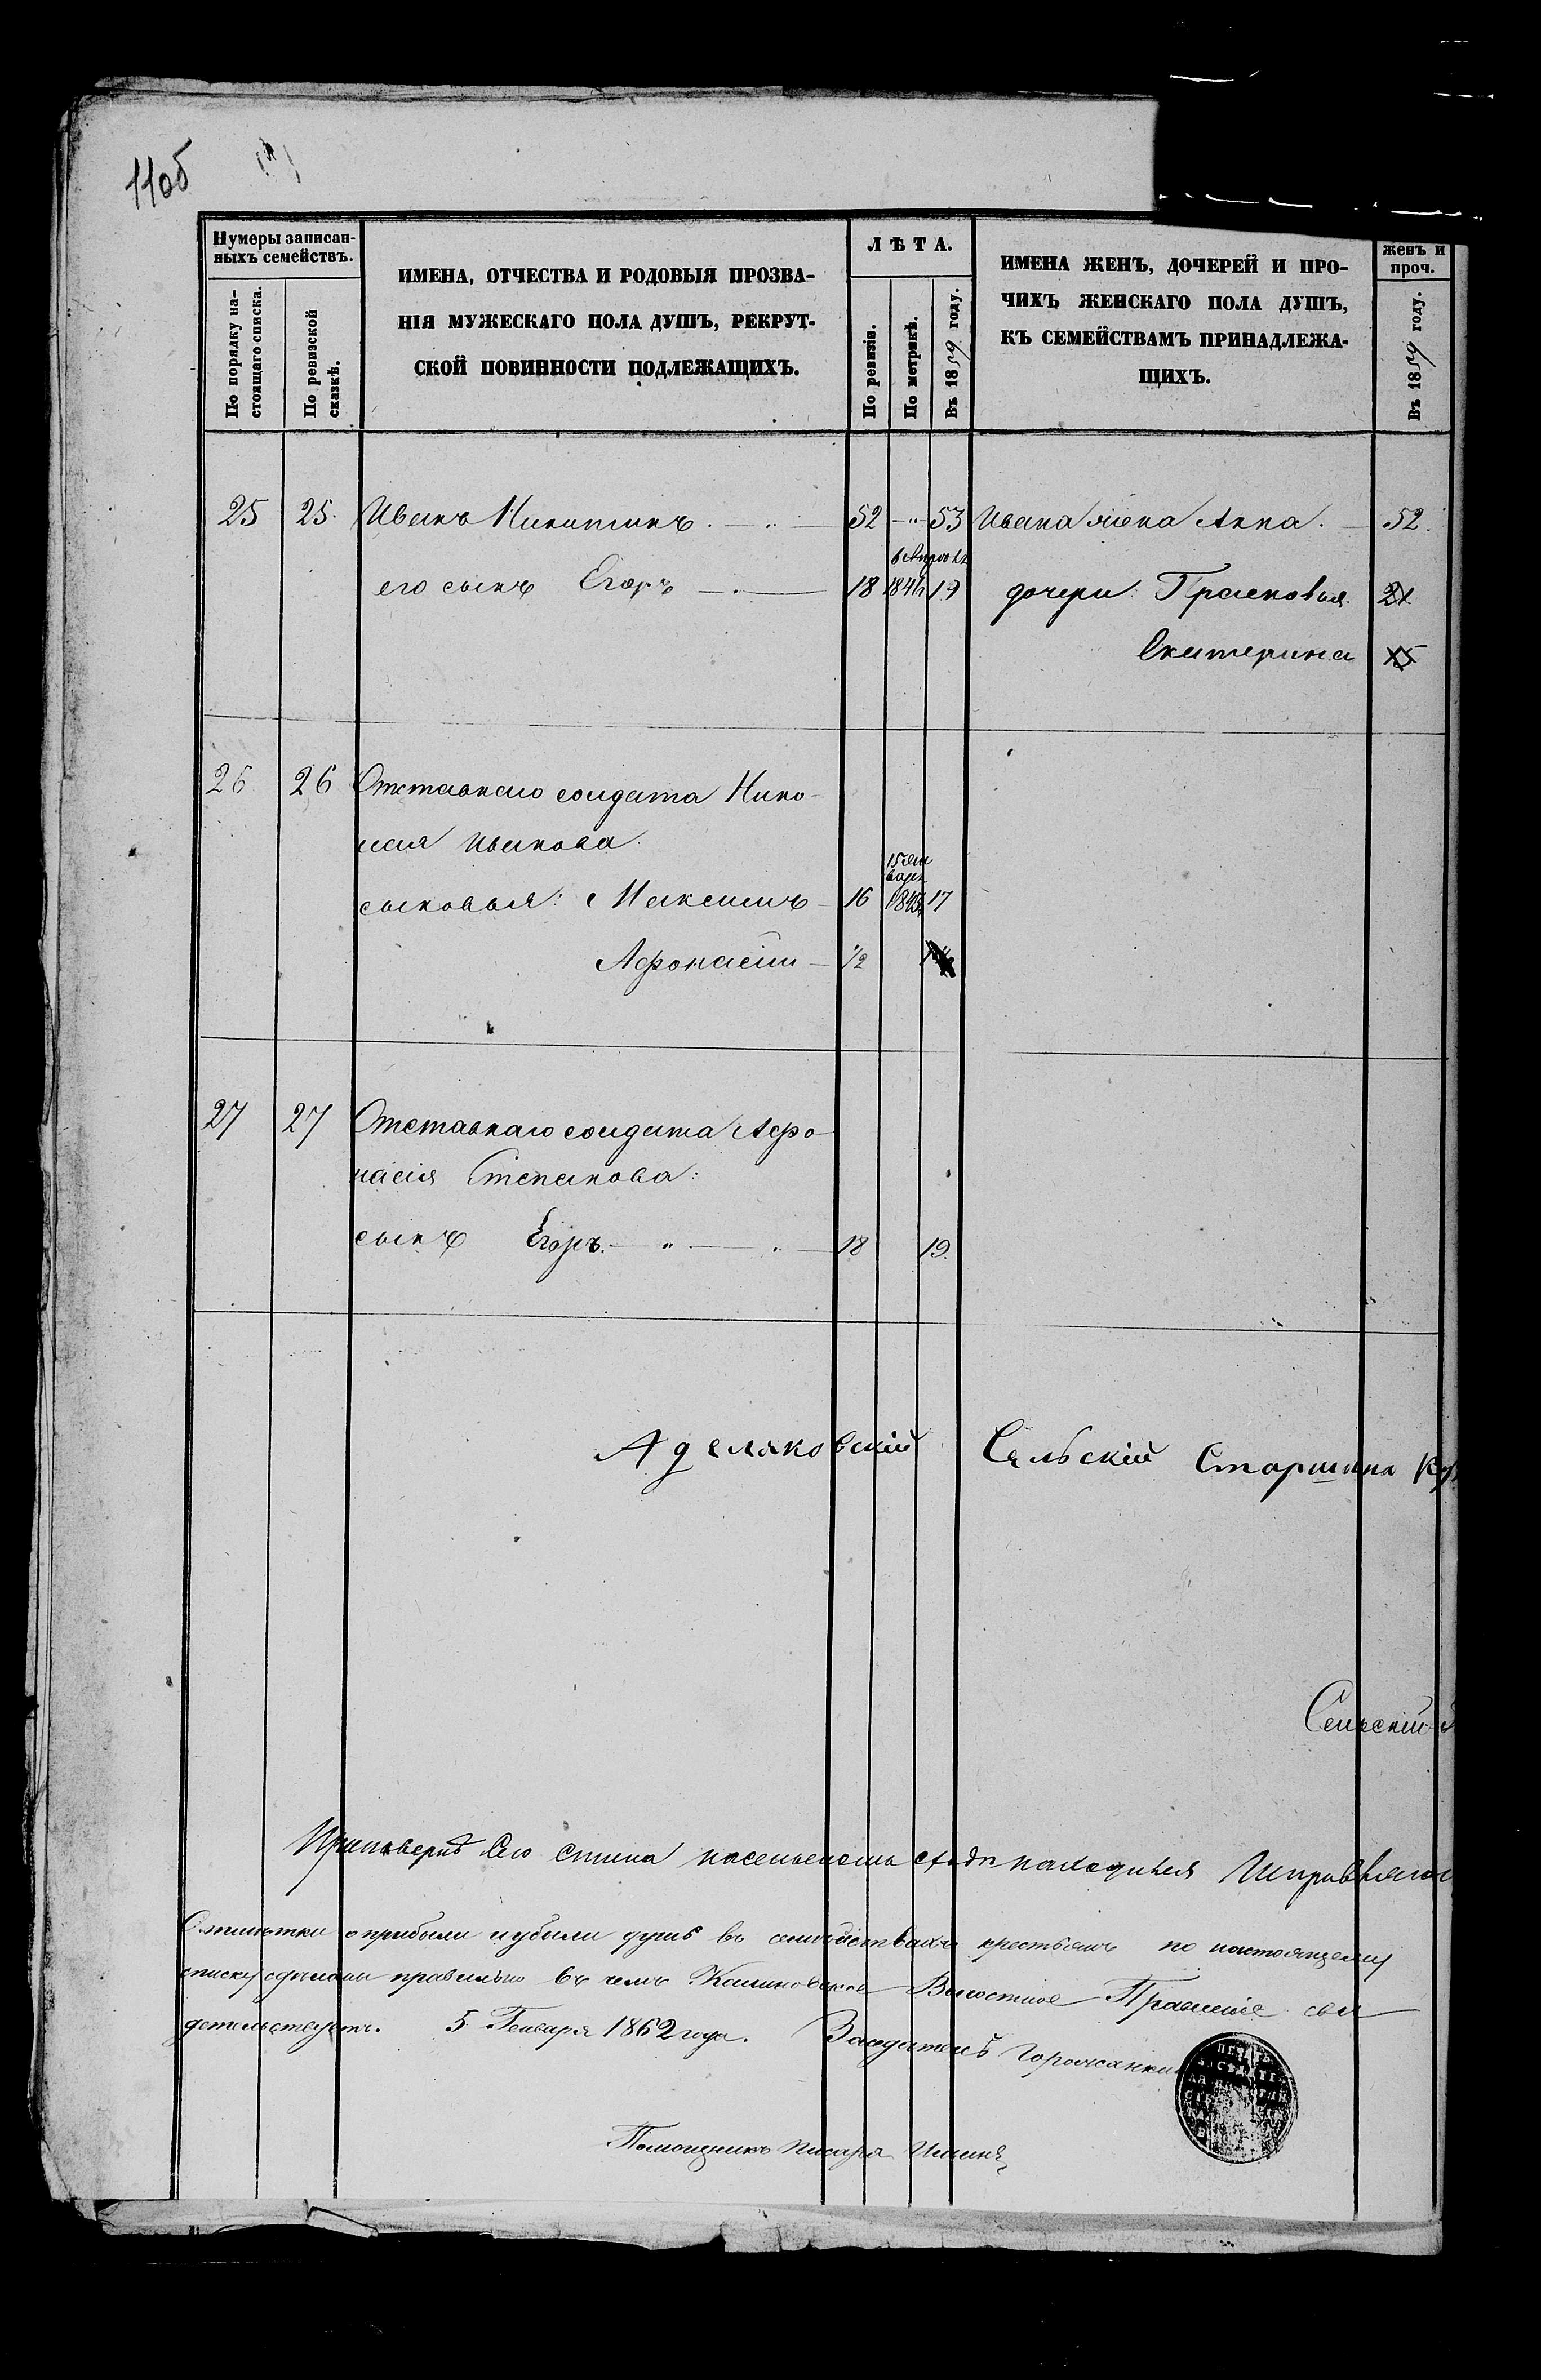 110б
Нумеры записан-
ныхъ семействъ.
По порядку на-
стоящаго списка.
По ревизской
сказкѣ.
ИМЕНА, ОТЧЕСТВА И РОДОВЫЯ ПРОЗВА-
НІЯ МУЖЕСКАГО ПОЛА ДУШЪ, РЕКРУТ-
СКОЙ ПОВИННОСТИ ПОДЛЕЖАЩИХЪ.
ЛѢТА.
По ревизіи.
По метрикѣ.
Въ 1859 году.
ИМЕНА ЖЕНЪ, ДОЧЕРЕЙ И ПРО-
ЧИХЪ ЖЕНСКАГО ПОЛА ДУШЪ,
КЪ СЕМЕЙСТВАМЪ ПРИНАДЛЕЖА-
ЩИХЪ.
женъ и
проч.
Въ 1859 году.
25 25. Иванъ Никитинъ. 52 53 Ивана жена Анна. 52.
его сынъ Егоръ 18 1841 19 дочери: Прасковья 21
Екатерина 15
26 26 Отставнаго солдата Нико-
лая Иванова.
15 Ян
варя
сыновья: Максимъ 16 1843 17
Афонасій 1/2
27 27 Отставнаго солдата Афо-
насія Степанова:
сынъ Егоръ. 18 19.
Аделяковскій Сельскій Старшина
Сельскій
Отмѣтки о прибыли и убыли душъ въ семействахъ крестьянъ по настоящему
списку сдѣланы правильно въ чемъ Калиновское Волостное Правленіе сви
детельствуетъ. 5 Генваря 1862 года. Засѣдатель Горожанкин
Помощникъ Писаря Ильинъ